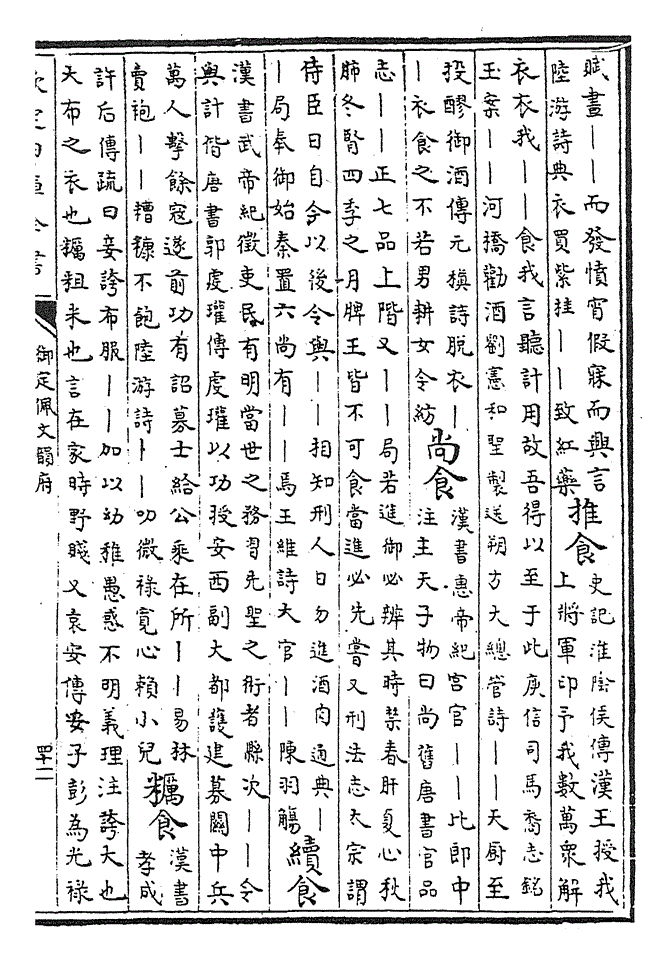 賦晝——而發憤宵假寐而興言
陸游詩典衣買紫挂——致紅藥
推食
史記淮陰侯傳漢王授我
上將軍印予我數萬衆解
衣衣我——食我言聽計用故吾得以至于此庾信司馬裔志銘
玉案——河橋勸酒劉憲和聖製送朔方大總管詩——天厨至
投醪御酒傳元稹詩脫衣—
—衣食之不若男耕女令紡
尚食
漢書惠帝紀宫官——比郎中
注主天子物曰尚舊唐書官品
志——正七品上階又——局若進御必辨其時禁春肝夏心秋
肺冬腎四季之月脾王皆不可食當進必先嘗又刑法志太宗謂
侍臣曰自今以後令與——相知刑人日勿進酒肉通典—
—局奉御始秦置六尚有——焉王維詩大官——陳羽觴
續食
漢書武帝紀徵吏民有明當世之務習先聖之術者縣次——令
與計偕唐書郭虔瓘傳虔瓘以功授安西副大都護建募關中兵
萬人擊餘寇遂前功有詔募士給公乘在所——易林
賣袍——糟糠不飽陸游詩——叨微禄寛心賴小兒
糲食
漢書
孝成
許后傳疏曰妾誇布服——加以幼稚愚惑不明義理注誇大也
大布之衣也糲粗米也言在家時野賤又袁安傳安子彭為光禄
欽定四庫全書
御定佩文韻府
四十二